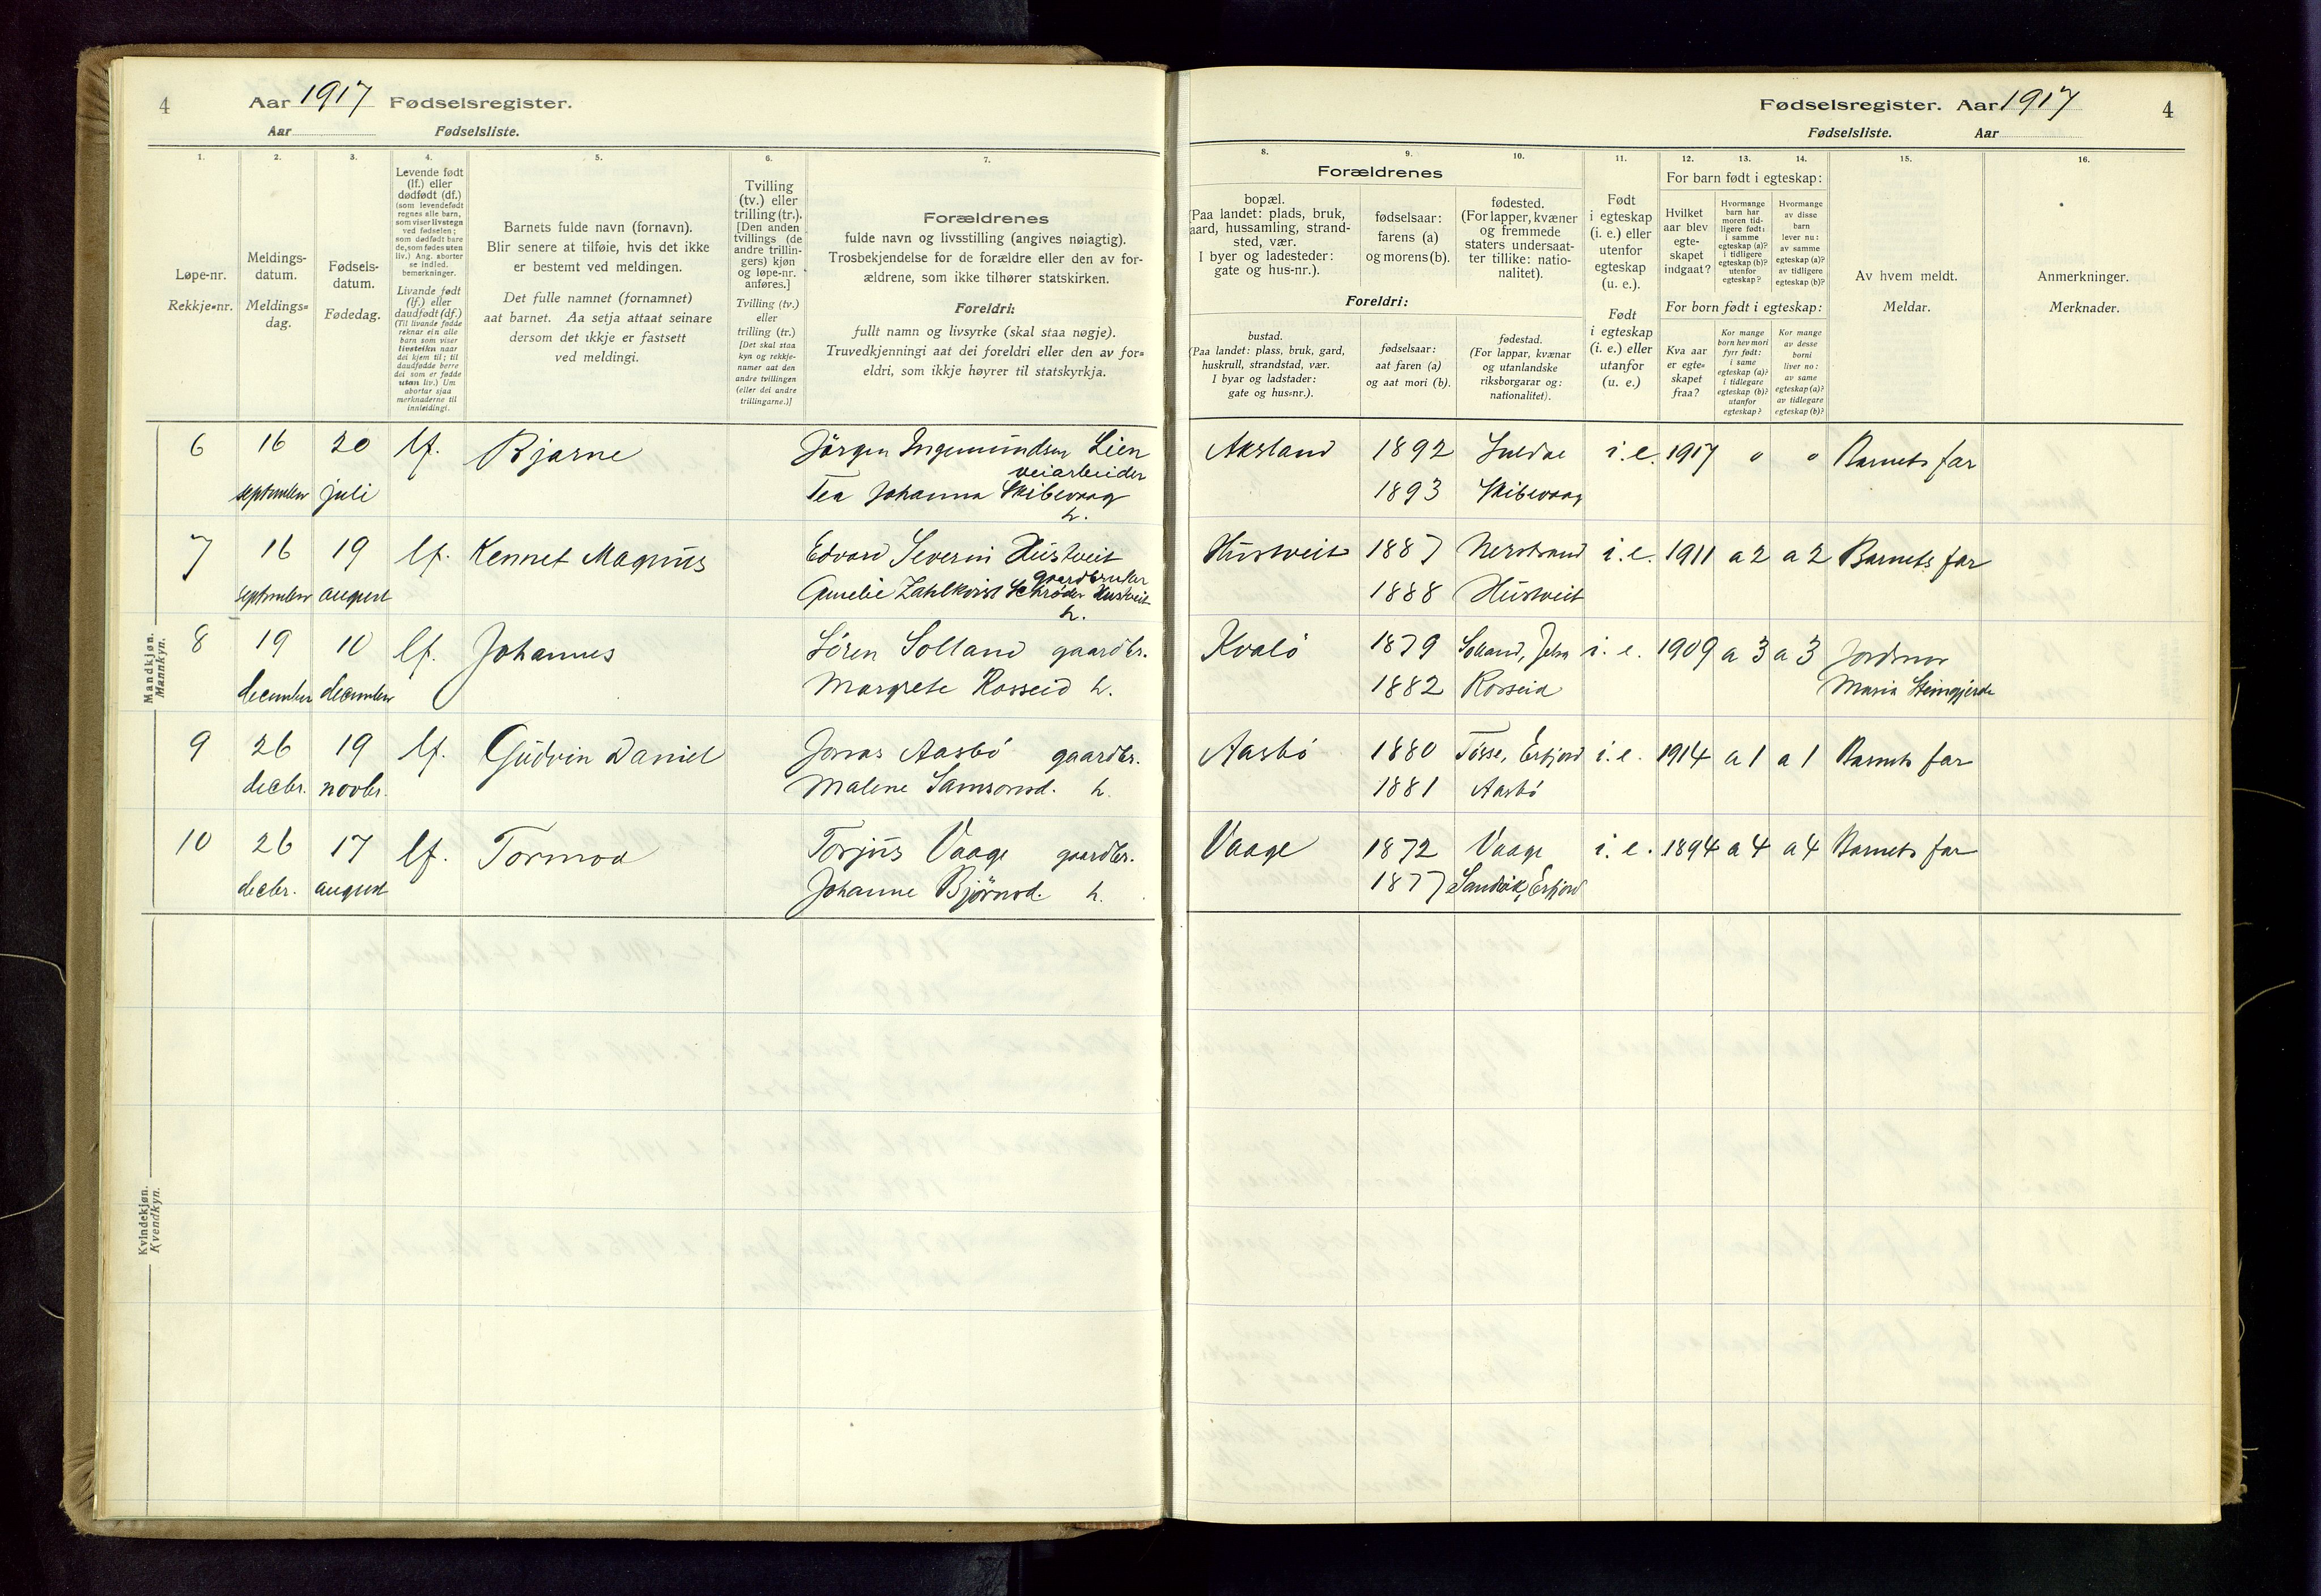 4
Aar 1917 Fødselsregister.
Aar Fødselsliste.
1.
2.
3.
4.
5.
6.
7.
Løpe-nr.
Rekkje=nr.
Meldings-
datum.
Meldings=
dag.
Fødsels-
datum.
Fødedag.
Levende født
(lf.) eller
dødfødt (df.)
(som levendefødt
regnes alle barn,
som viser livstegn
ved fødselen;
som dødfødt bare
de, som fødes uten
liv.) Ang. aborter
se indled.
bemerkninger.
Livande født
(lf.) eller
daudfødt (df.)
(Til livande fødde
reknar ein alle
barn som viser
livsteikn naar
dei kjem til; til
daudfødde berre
dei som er fødde
utan liv.) Um
abortar sjaa
merknaderne til
innleidingi.
Barnets fulde navn (fornavn).
Blir senere at tilføie, hvis det ikke
er bestemt ved meldingen.
Det fulle namnet (fornamnet)
aat barnet. Aa setja attaat seinare
dersom det ikkje er fastsett
ved meldingi.
Tvilling
(tv.) eller
trilling (tr.).
[Den anden
tvillings (de
andre trillin-
gers) kjøn
og løpe-nr.
anføres.]
Tvilling (tv.)
eller
trilling (tr.)
[Det skal staa
kyn og rekkje-
numer aat den
andre tvillingen
(eller dei andre
trillingarne.)]
Forældrenes
fulde navn og livsstilling (angives nøiagtig).
Trosbekjendelse for de forældre eller den av for-
ældrene, som ikke tilhører statskirken.
Foreldri:
fullt namn og livsyrke (skal staa nøgje).
Truvedkjenningi aat dei foreldri eller den av for=
eldri, som ikkje høyrer til statskyrkja.
Mandkjøn.
Mannkyn.
6 16 20 lf. Bjarne Jörgen Ingemundsen Lien
veiarbeider
september juli Tea Johanna Skibevaag
h.
7 16 19 lf. Kennet Magnus Edvard Severin Hustveit
gaardbruker
september august Amelie Zahlkvist Schrøder Hustveit
h.
8 19 10 lf. Johannes Sören Solland gaardbr.
december december Margrete Rosseid h.
9 26 19 lf. Gudvin Daniel Jonas Aasbö gaardbr.
decbr. novbr. Malene Samsonsd. h.
10 26 17 lf. Tormod Torjus Vaage gaardbr.
decbr. august Johanne Björnsd. h.
Kvindekjøn.
Kvendkyn.
Fødselsregister. Aar 1917 4
Fødselsliste. Aar
8.
9.
10.
11.
12.
13.
14.
15.
16.
Forældrenes
bopæl.
(Paa landet: plads, bruk,
gaard, hussamling, strand-
sted, vær.
I byer og ladesteder:
gate og hus-nr.).
fødselsaar:
farens (a)
og morens (b).
fødested.
(For lapper, kvæner
og fremmede
staters undersaat-
ter tillike: natio-
nalitet).
Foreldri:
bustad.
(Paa landet: plass, bruk, gard,
huskrull, strandstad, vær.
I byar og ladstader:
gate og hus=nr.).
fødselsaar:
aat faren (a)
og aat mori (b).
fødestad.
(For lappar, kvænar
og utanlandske
riksborgarar og:
nationalitet).
Født
i egteskap
(i. e.) eller
utenfor
egteskap
(u. e.).
Født
i egteskap
(i. e.) eller
utanfor
(u. e.)
For barn født i egteskap:
Hvilket
aar blev
egte-
skapet
indgaat?
Hvormange
barn har
moren tid-
ligere født:
i samme
egteskap (a)?
i tidligere
egteskap (b)?
utenfor
egteskap?
Hvormange
av disse
barn
lever nu:
av samme
egteskap (a)?
av tidligere
egteskap (b)?
For born født i egteskap:
Kva aar
er egte=
skapet
fraa?
Kor mange
born hev mori
fyrr født:
i same
egteskap (a)?
i tidlegare
egteskap (b)?
utanfor
egteskap?
Kor mange
av desse
borni
liver no:
av same
egteskap (a)?
av tidlegare
egteskap (b)?
Av hvem meldt.
Meldar.
Anmerkninger.
Merknader.
Aksland 1892 Suldal i. e. 1917 " " Barnets far
1893 Skibevaag
Hustveit 1887 Nerstrand i. e. 1911 a 2 a 2 Barnets far
1888 Hustveit
Kvalö 1879 Solland, Jelsa i. e. 1909 a 3 a 3 Jordmor
1882 Rosseid Maria Steingjerde
Aasbö 1880 Tösse, Erfjord i. e. 1914 a 1 a 1 Barnets far
1881 Aasbö
Vaage 1872 Vaage i. e. 1894 a 4 a 4 Barnets far
1877 Sandvik, Erfjord